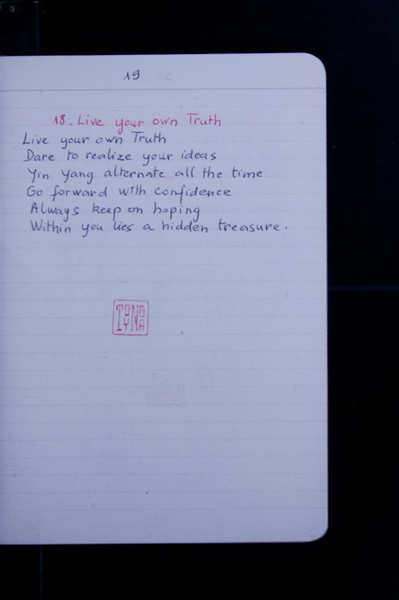 19
18. Live your own Truth
Live your own Truth
Dare to realize your ideas
Yin Yang alternate all the time
Go forward with confidence
Always keep on hoping
Within you lies a hidden treasure.